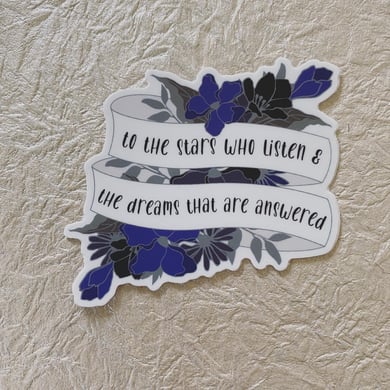 to the stars who listen &
the dreams that are answered